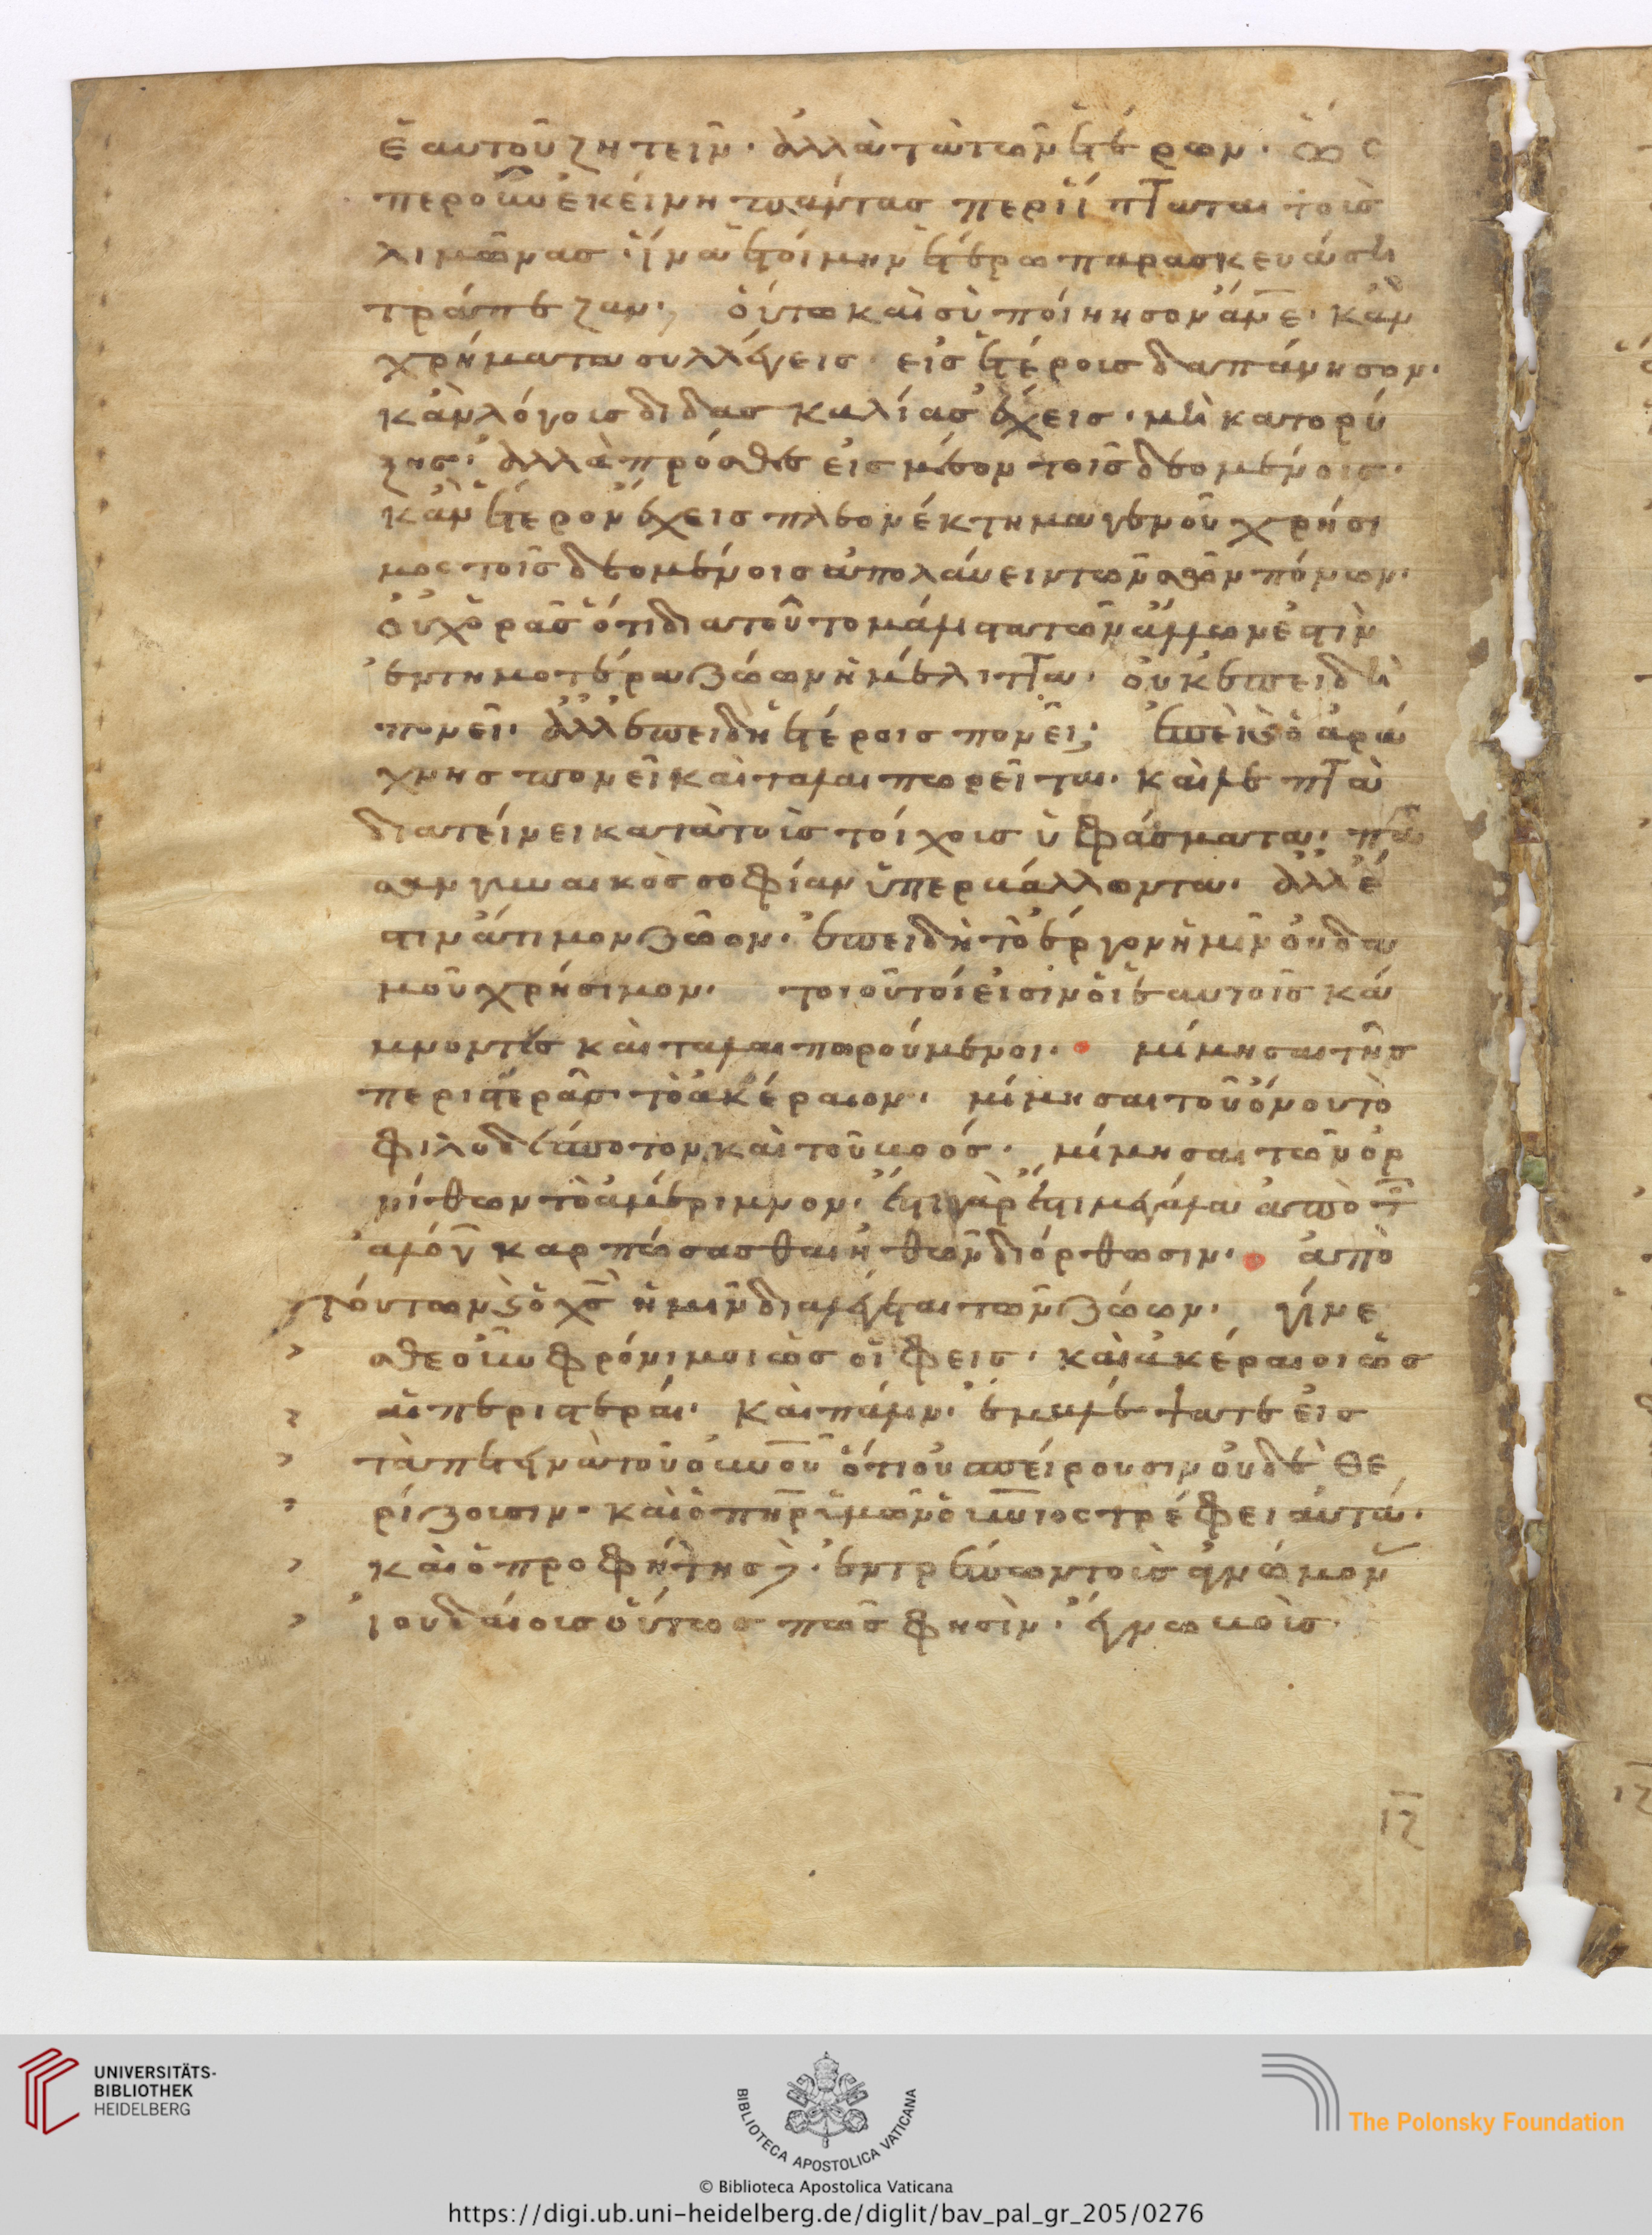 ἑαυτοῦ ζητεῖν· ἀλλὰ τὰ τῶν ἑτέρων· ὥσ
περ οὖν ἐκείνη πάντας περιΐπταται τοὺς
λιμῶνας· ἵνα ἑτοίμην ἑτέρω παρασκευάση
τράπεζαν· οὕτω καὶ σὺ ποίησον ἄνε· κἂν
χρήματα συλλέγεις εἰς ἑτέροις δαπάνησον·
κἂν λόγοις διδασκαλίας ἔχεις· μὴ κατορύ
ξης· ἀλλὰ πρόσθες εἰς μέσον τοῖς δεομένοις·
κἂν ἕτερον ἔχεις πλεονέκτημα γενοῦ χρήσι
μος τοῖς δεομένοις ἀπολαύειν τῶν σῶν πόνων·
οὐχ ὁρᾶς ὅτι διατοῦτο μάλιστα τῶν ἄλλων ἐστὶν
ἐντημοτέρα ζώων ἡ μέλιττα· οὐκ ἐπειδὴ
πονεῖ· ἀλλ' ἐπειδὴ ἑτέροις πονεῖ; ἐπεὶ καὶ ὁ ἀρά
χνης πονεῖ καὶ ταλαιπωρεῖται· καὶ λεπτὰ
διατείνει κατὰ τοὺς τοίχους ὑφάσματα· πᾶ
σαν γυναικὸς σοφίαν ὑπερβάλλοντα· ἀλλ' ἔ
στιν ἄτιμον ζῶον· ἐπειδὴ τὸ ἔργον ἡμῖν οὐδα
μοῦ χρήσιμον· τοιοῦτοί εἰσιν οἱ ἑαυτοῖς κά
μνοντες καὶ ταλαιπωρούμενοι· μίμησαι τῆς
περιστερᾶς τὸ ἀκέραιον· μίμησαι τοῦ ὄνου τὸ
φιλοδέσποτον καὶ τοῦ βοός· μίμησαι τῶν ὀρ
νίθων τὸ ἀμέριμνον· ἔστι γὰρ ἔστι μεγάλα ἀπὸ τ
ἀλόγ καρπώσασθαι ἠθῶν διόρθωσιν· ἀπὸ
τούτων καὶ ὁ χς ἡμῖν διαλέγεται τῶν ζώων· γίνε
σθε οὖν φρόνιμοι ὡς οἱ ὄφεις· καὶ ἀκέραιοι ὡς
αἱ περιστεραί· καὶ πάλιν· ἐμβλέψατε εἰς
τὰ πετεινὰ τοῦ οὐνοῦ ὅτι οὐ σπείρουσιν οὐδὲ θε
ρίζουσιν· καὶ ὁ πηρ ὑμῶν ὁ οὐνιος τρέφει αὐτά·
καὶ ὁ προφήτης δὲ ἐντρέπων τοὺς ἀγνώμον
ἰουδαίους οὕτως πῶς φησὶν· ἔγνω βοῦς
ιζ
UNIVERSITÄTS-
BIBLIOTHEK
HEIDELBERG
BIBLIOTECA APOSTOLICA VATICANA
The Polonsky Foundation
© Biblioteca Apostolica Vaticana
https://digi.ub.uni-heidelberg.de/diglit/bav_pal_gr_205/0276